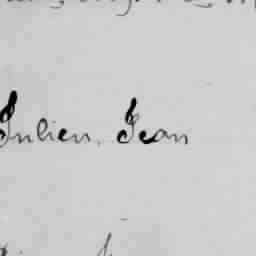 Julien, Jean